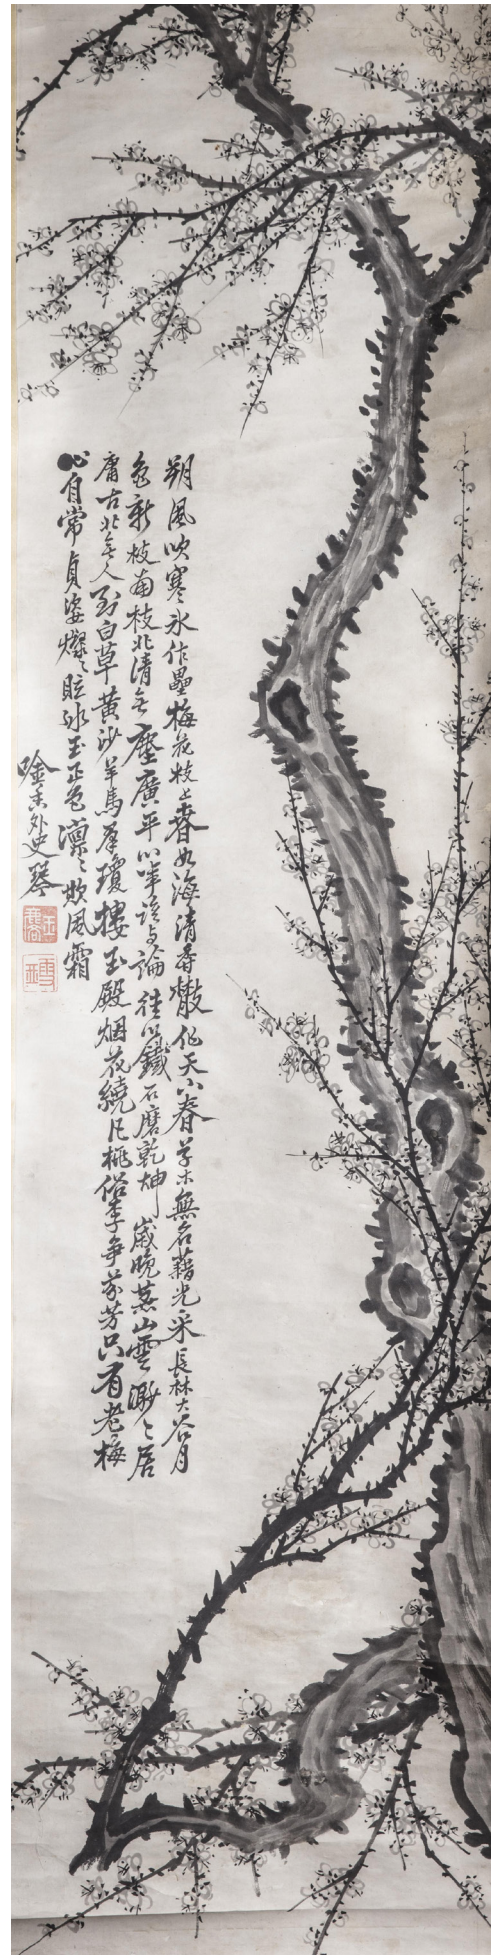 朔風吹寒冰作壘梅花枝上春如海清香散作天下春草木無名藉光采長林大谷月
色新枝南枝北清無塵廣平心事誰与論徒以鐵石磨乾坤歲晚燕山雲渺〻居
庸古北無人到白草黄沙羊馬群瓊樓玉殿烟花繞凡桃俗李争芬芳只有老梅
心自常貞姿燦〻眩冰玉正色凛〻欺風霜
唫香外史琴